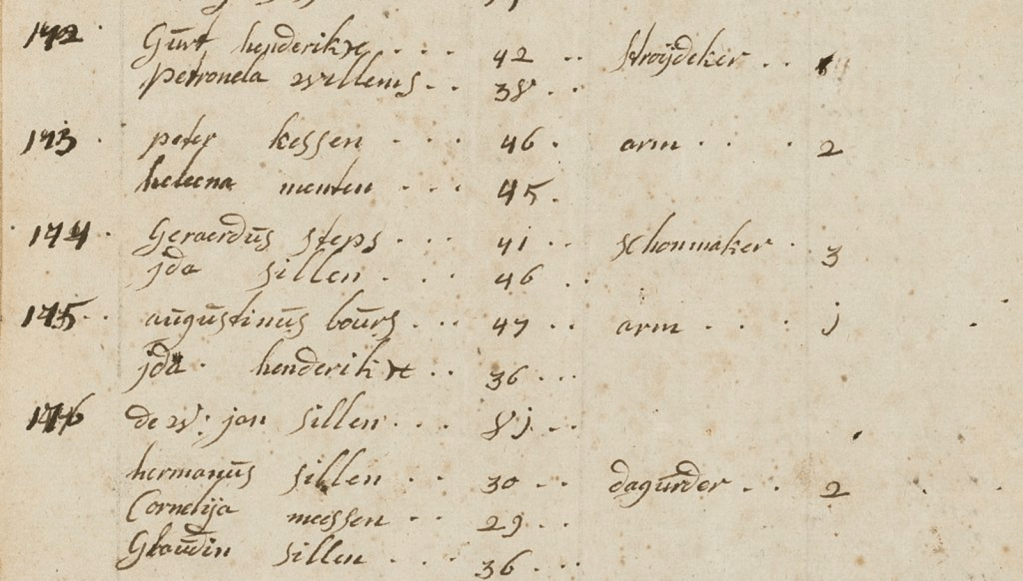 172 Gūrt henderikx 42 stroijdeker
petronela willems 38
173 peter kessen 46 arm 2
heleena menten 45
174 Geraerdūs steps 41 schonmaker 3
jda sillen 46
175 aūgūstinūs boūrs 47 arm j
jda henderikx 36
176 de w. jan sillen 8j
hermanūs sillen 30 dagūrder 2
Cornelija meessen 29
Glaūdin sillen 36